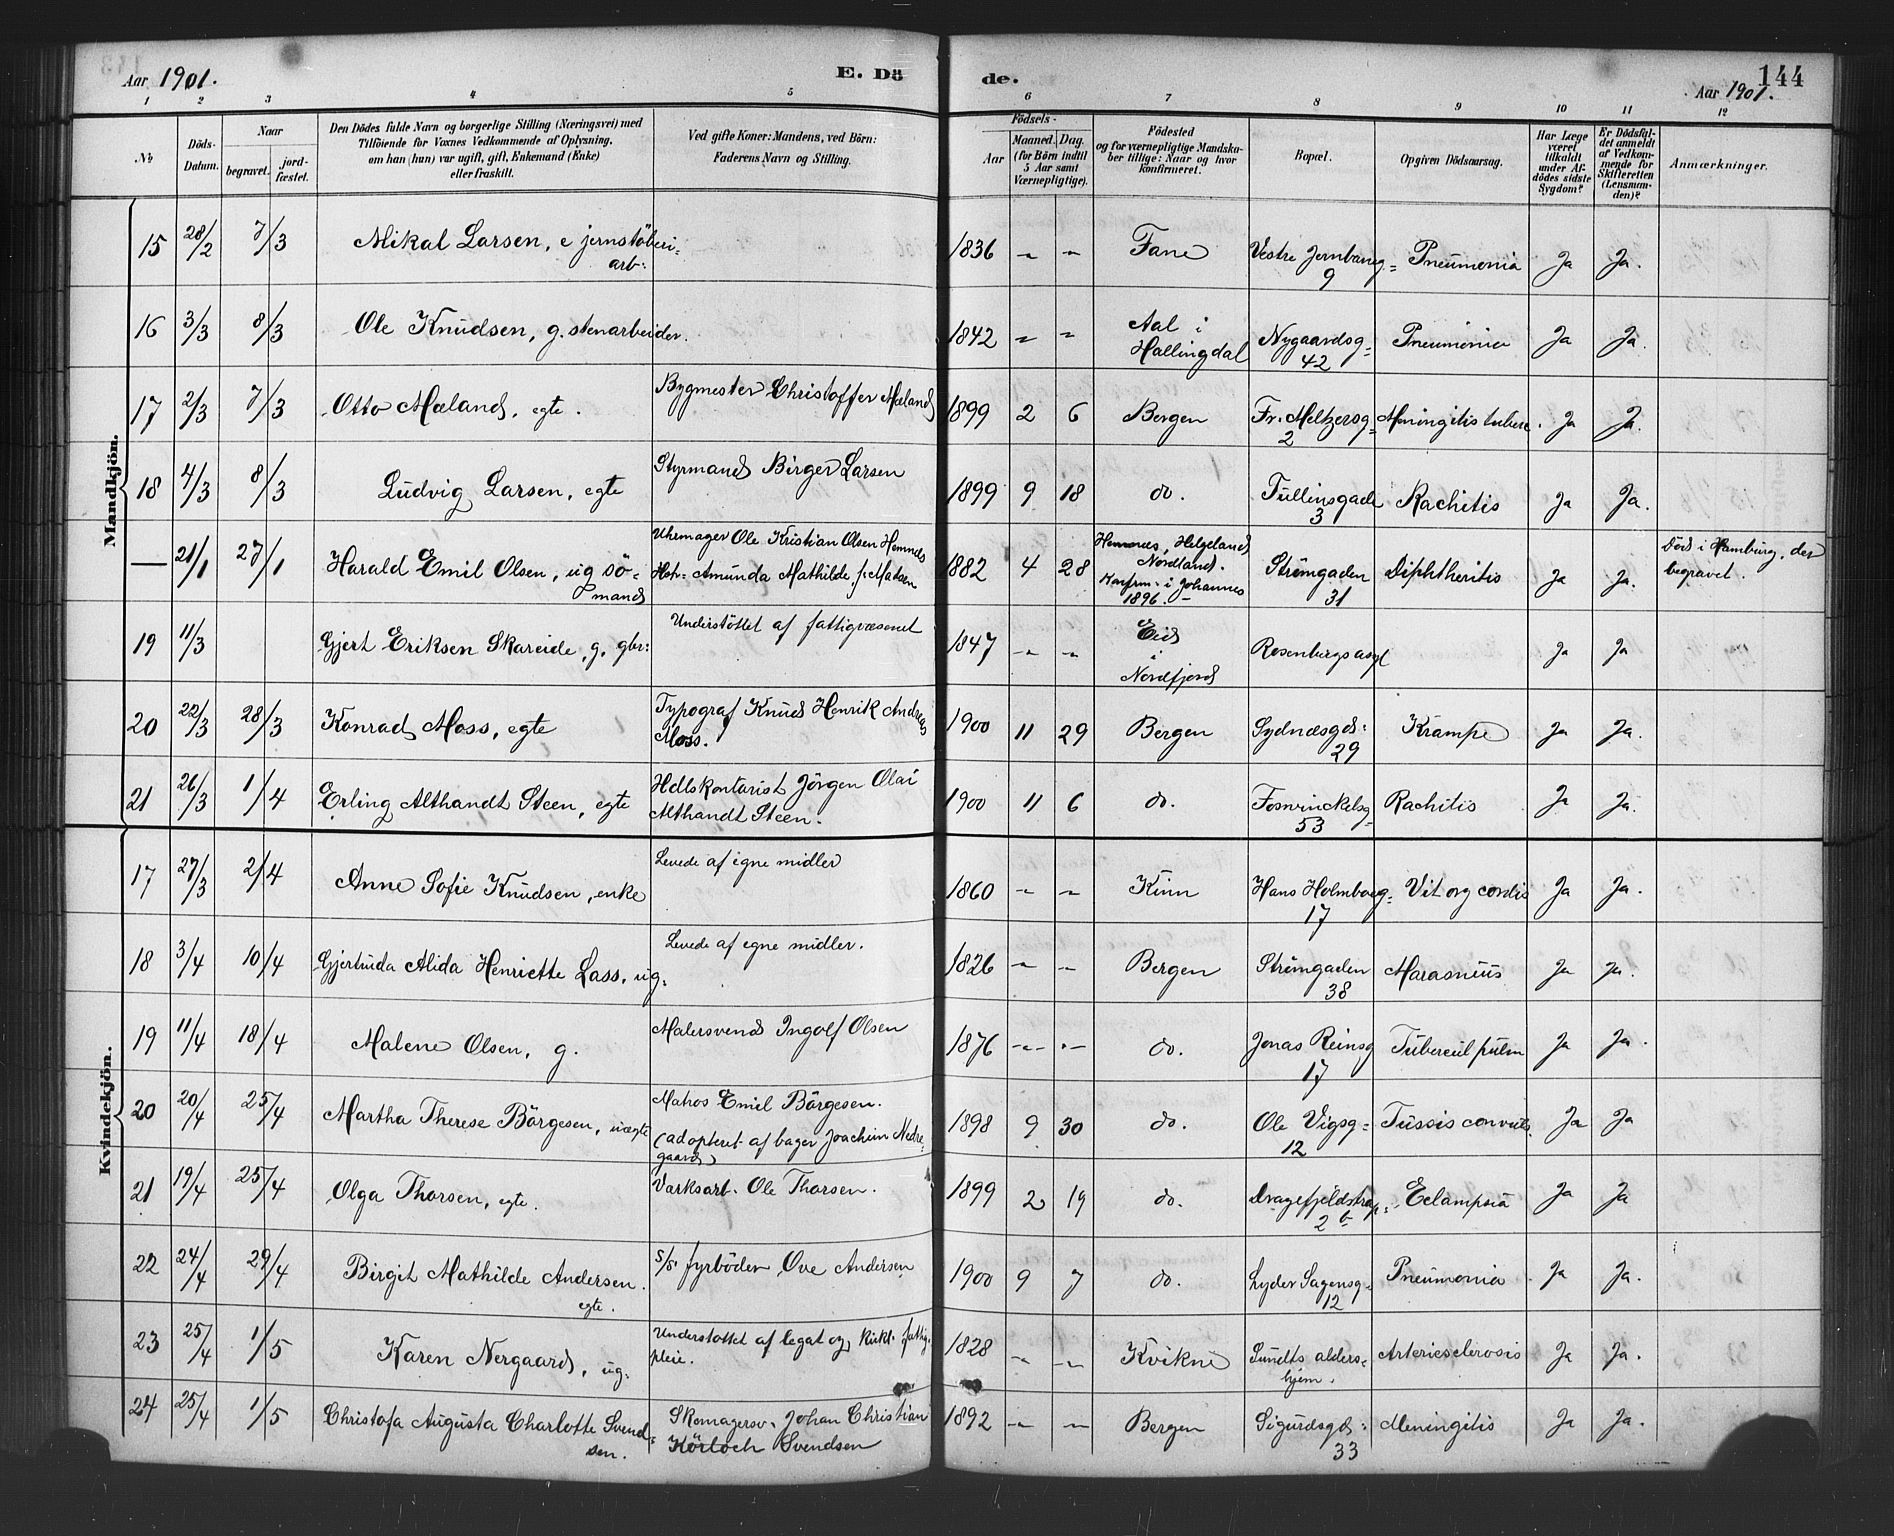 Aar 1901. E. Dö de. 144
Aar 1901.
1 2 3 4 5 6 7 8 9 10 11 12
№
Döds-Datum.
Naar
begravet.
jordfæstet.
Den Dödes fulde Navn og borgerlige Stilling (Næringsvei) med
Tilföiende for Voxnes Vedkommende af Oplysning,
om han (hun) var ugift, gift, Enkemand (Enke)
eller fraskilt.
Ved gifte Koner: Mandens, ved Börn:
Faderens Navn og Stilling.
Födsels-
Aar
Maaned. Dag.
(for Börn indtil
5 Aar samt
Værnepligtige).
Födested
og for værnepligtige Mandskaber
tillige: Naar og hvor
konfirmeret.
Bopæl.
Opgiven Dödsaarsag.
Har Læge
været
tilkaldt
under Afdödes
sidste
Sygdom?
Er Dödsfaldet
anmeldt
af Vedkommende
for
Skifteretten
(Lensmanden)?
Anmærkninger.
Mandkjön.
15 28/2 7/3 Mikal Larsen, e jernstöberiarb: 1836 " " Fane Vestre Jernbaneg= 9 Pneumonia Ja Ja.
16 3/3 8/3 Ole Knudsen, g. stenarbeider. 1842 " " Aal i Hallingdal Nygaardsg= 42 Pneumonia Ja Ja.
17 2/3 7/3 Otto Mæland, egte. Bygmester Christoffer Mæland 1899 2 6 Bergen Fr. Meltzersg= 2 Meningitis tuberc. Ja Ja.
18 4/3 8/3 Ludvig Larsen, egte Styrmand Birger Larsen 1899 9 18 do. Tullinsgade 3 Rachitis Ja Ja.
— 21/1 27/1 Harald Emil Olsen, ug sömand Uhrmager Ole Kristian Olsen Hemnes Amunda Mathilde f. Madsen 1882 4 28 Hemnes, Helgeland Nordland. Konfirm. i Johannes 1896. Strömgaden 31 Diphtheritis Ja Ja. Död i Hamburg, der begravet.
19 11/3 Gjert Eriksen Skareide, g. gbr: Understöttet af fattigvæsenet 1847 " " Eid i Nordfjord Rosenbergs asyl Ja Ja
20 22/3 28/3 Konrad Moss, egte Typograf Knud Henrik Andreas Moss. 1900 11 29 Bergen Sydnæsgd: 29 Krampe Ja Ja.
21 26/3 1/4 Erling Althandt Steen, egte Hdlskontorist Jörgen Olai Althandt Steen. 1900 11 6 do. Fosvinckelsg= 53 Rachitis Ja Ja.
Kvindekjön.
17 27/3 2/4 Anne Sofie Knudsen, enke Levede af egne midler 1860 " " Kinn Hans Holmboeg= 17 Vit org cordis Ja Ja.
18 3/4 10/4 Gjertruda Alida Henriette Lass, ug. Levede af egne midler. 1826 " " Bergen Strömgaden 38 Marasmus Ja Ja.
19 11/4 18/4 Malene Olsen, g. Malersvend Ingolf Olsen 1876 " " do. Jonas Reinsg 17 Tubercul pulm Ja Ja.
20 20/4 25/4 Martha Therese Börgesen, uægte Matros Emil Börgesen. (adopteret af bager Joachim Nedregaard) 1898 9 30 do. Ole Vigsg= 12 Tussis convuls. Ja Ja
21 19/4 25/4 Olga Thorsen, egte. Værksarb. Ole Thorsen. 1899 2 19 do. Dragefjeldstrap= 2 b Eclampsia Ja Ja
22 24/4 29/4 Birgit Mathilde Andersen. egte. s/s fyrböder Ove Andersen 1900 9 7 do. Lyder Sagensg= 12 Pneumonia Ja Ja.
23 25/4 1/5 Karen Nergaard, ug. Understottet af legat og kirkl. fattigpleie. 1828 " " Kvikne Sundts aldershjem. Arteriesclerosis Ja Ja.
24 25/4 1/5 Christofa Augusta Charlotte Svendsen. Skomagersv. Johan Christian Körloch Svendsen 1892 " " Bergen Sigurdsgd: 33 Meningitis Ja Ja.